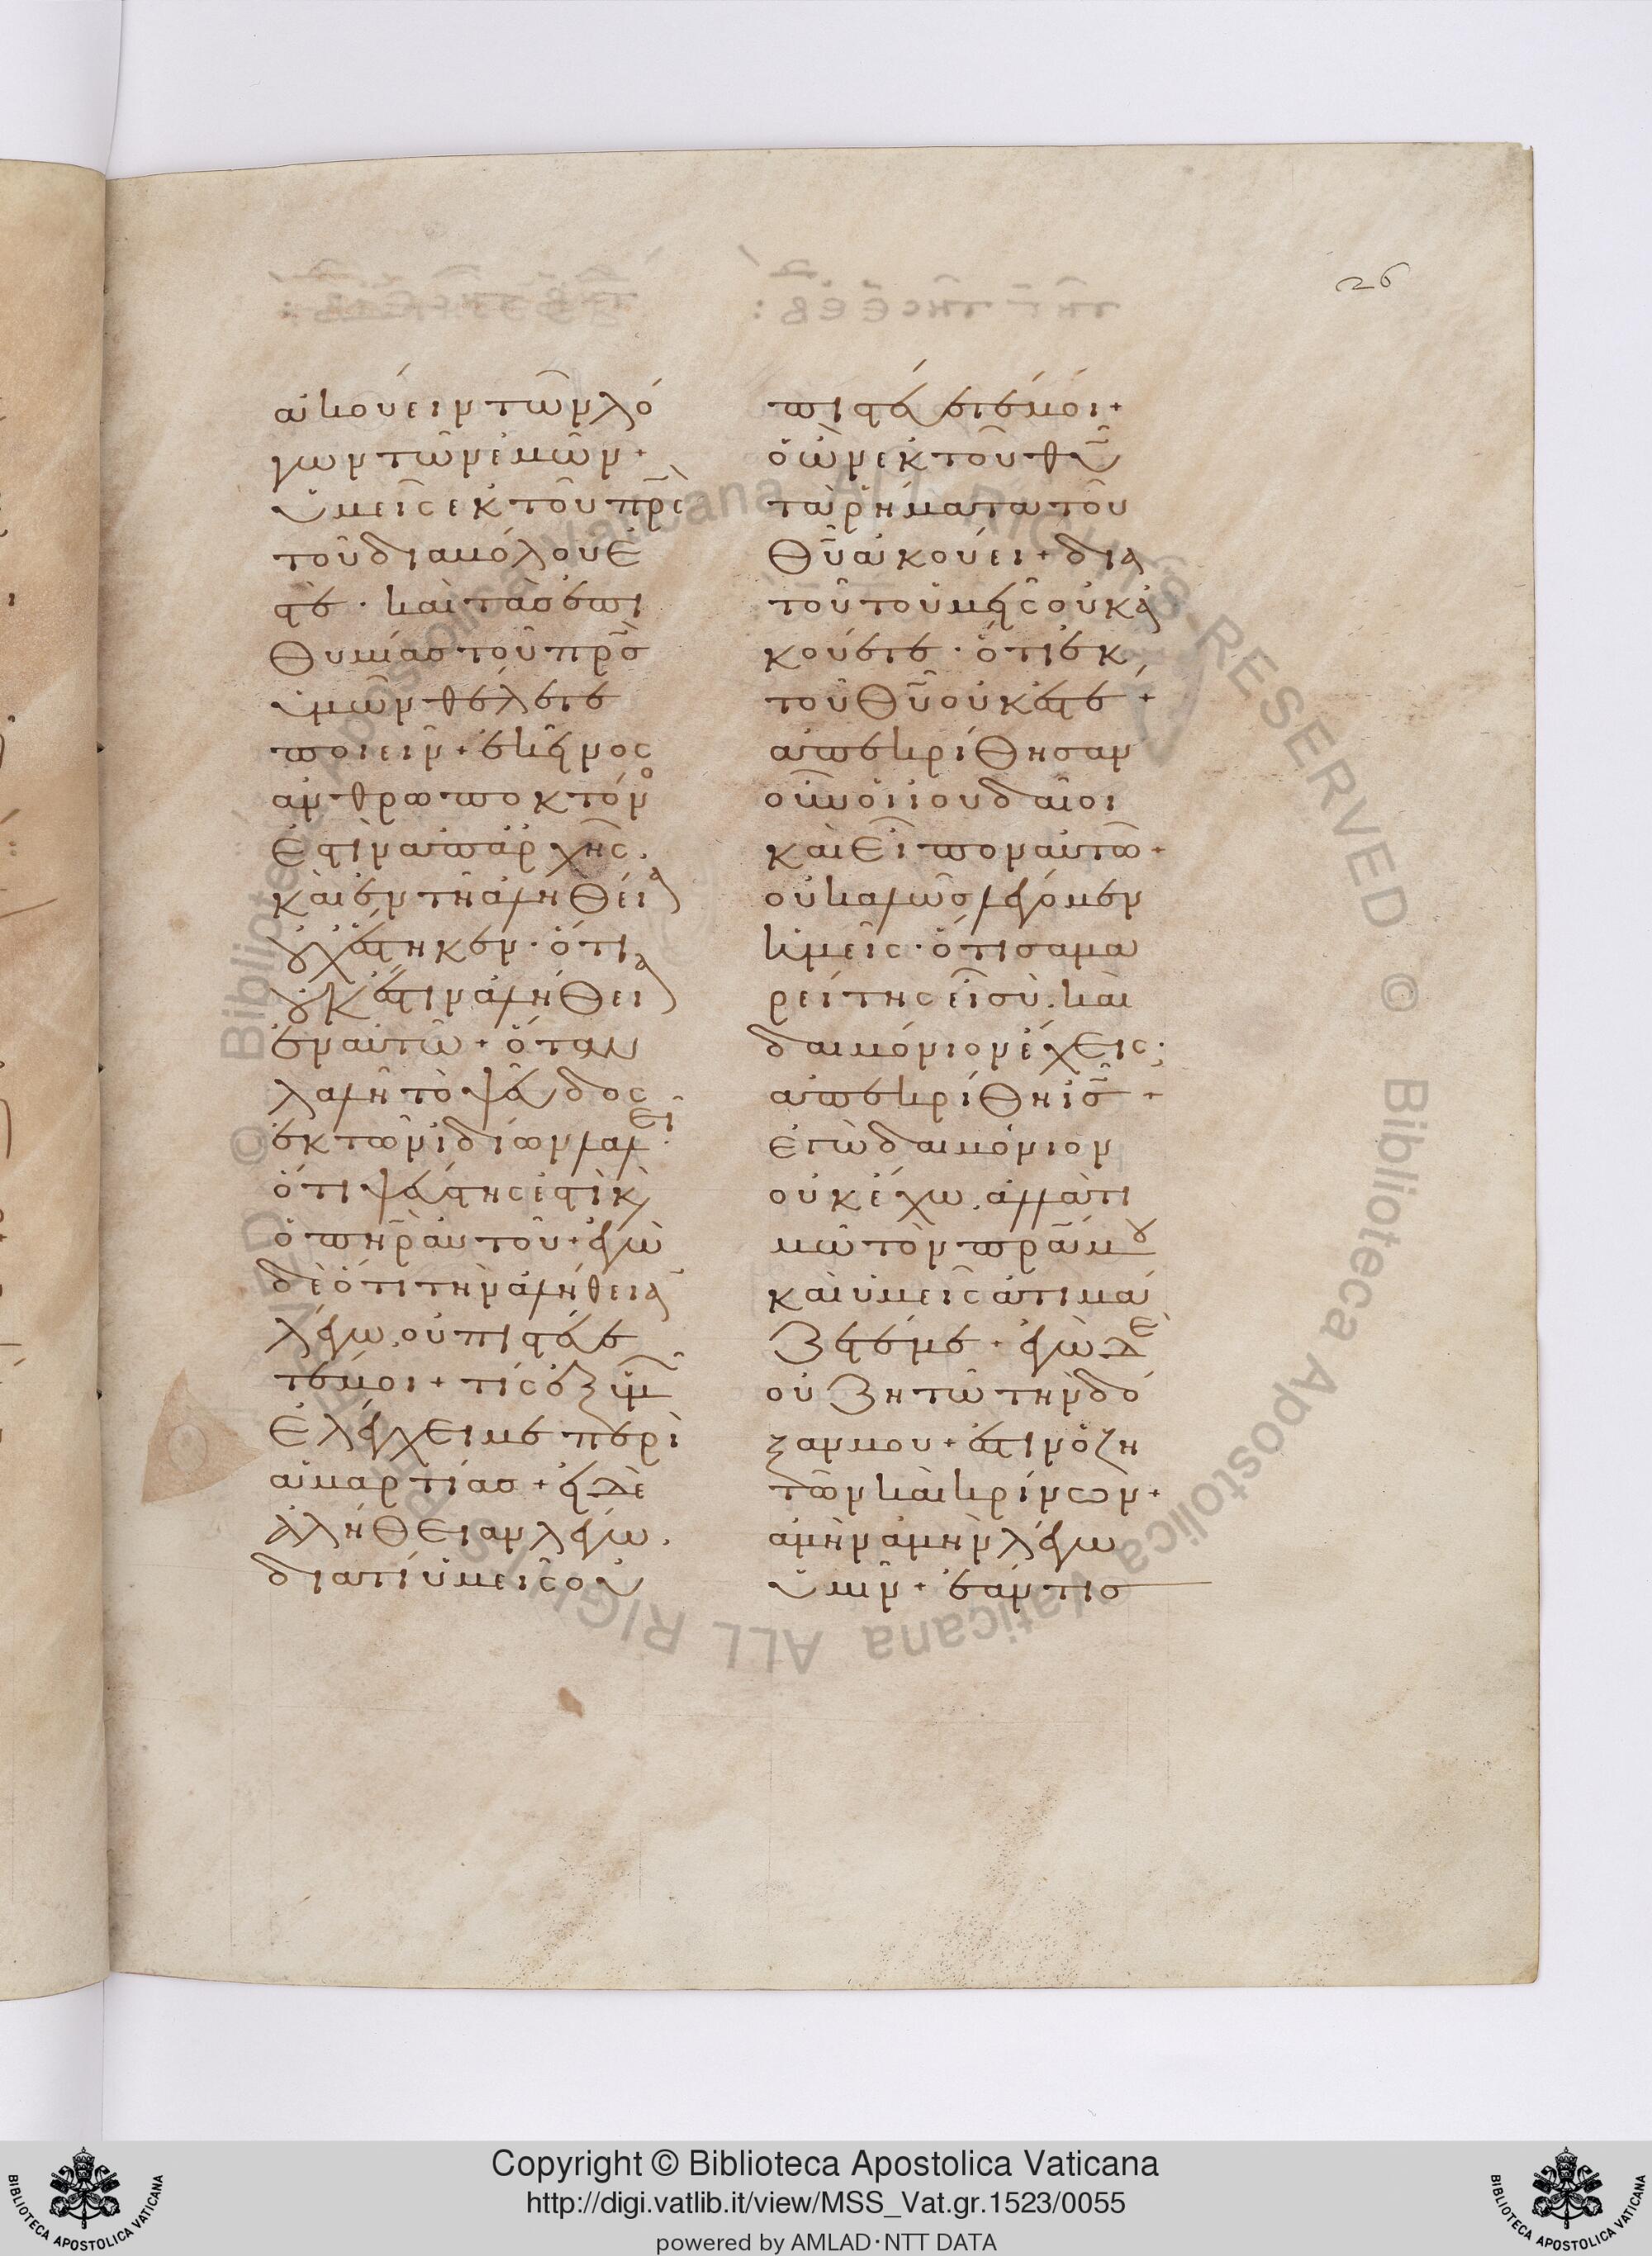 26
ἀκούειν τῶν λό
γων τῶν ἐμῶν +
ὑμεῖς ἐκ τοῦ πρ̅ς
τοῦ διαβόλου ἐ
στέ · καὶ τὰς ἐπι
θυμίας τοῦ πρ̅ς
ὑμῶν θέλετε
ποιεῖν + ἐκεῖνος
ἀνθρωποκτόν
ἐστὶν ἀπ' ἀρχῆς.
καὶ ἐν τῇ ἀληθεία
οὐχ ἕστηκεν · ὅτι
οὐκ ἔστιν ἀλήθεια
ἐν αὐτῶ + ὅταν
λαλῆ τὸ ψεῦδος
ἐκ τῶν ἰδίων λαλεῖ ·
ὅτι ψεύστης ἐστὶ κ
ὁ πη̅ρ αὐτοῦ + ἐγὼ
δὲ ὅτι τὴν ἀλήθεια
λέγω. οὐ πιστεύε
τέ μοι + τίς ἐξ ὑμ
ἐλέγχει με περὶ
ἁμαρτίας + εἰ δὲ
ἀλήθειαν λέγω.
διατί ὑμεῖς οὐ
πιστεύετέ μοι +
ὁ ὢν ἐκ τοῦ θυ̅
τὰ ῥήματα τοῦ
θυ̅ ἀκούει + δια
τοῦτο ὑμεῖς οὐκ ἀ
κούετε · ὅτι ἐκ
τοῦ θυ̅ οὐκ ἐστέ +
ἀπεκρίθησαν
οὖν οἱ ἰουδαῖοι
καὶ εἶπον αὐτῶ +
οὐ καλῶς λέγομεν
ἡμεῖς · ὅτι σαμα
ρείτης εἶ σὺ. καὶ
δαιμόνιον ἔχεις;
ἀπεκρίθη ις̅ +
ἐγὼ δαιμόνιον
οὐκ ἔχω. ἀλλὰ τι
μῶ τὸν πρ̅α μου
καὶ ὑμεῖς ἀτιμά
ζετέ με + ἐγὼ δὲ
οὐ ζητῶ τὴν δό
ξαν μου + ἔστιν ὁ ζη
τῶν καὶ κρίνων +
ἀμὴν ἀμὴν λέγω
ὑμῖν + ἐάν τις
Copyright © Biblioteca Apostolica Vaticana
http://digi.vatlib.it/view/MSS_Vat.gr.1523/0055
powered by AMLAD·NTT DATA
BIBLIOTECA APOSTOLICA VATICANA
BIBLIOTECA APOSTOLICA VATICANA
© Biblioteca Apostolica Vaticana ALL RIGHTS RESERVED © Biblioteca Apostolica Vaticana ALL RIGHTS RESERVED